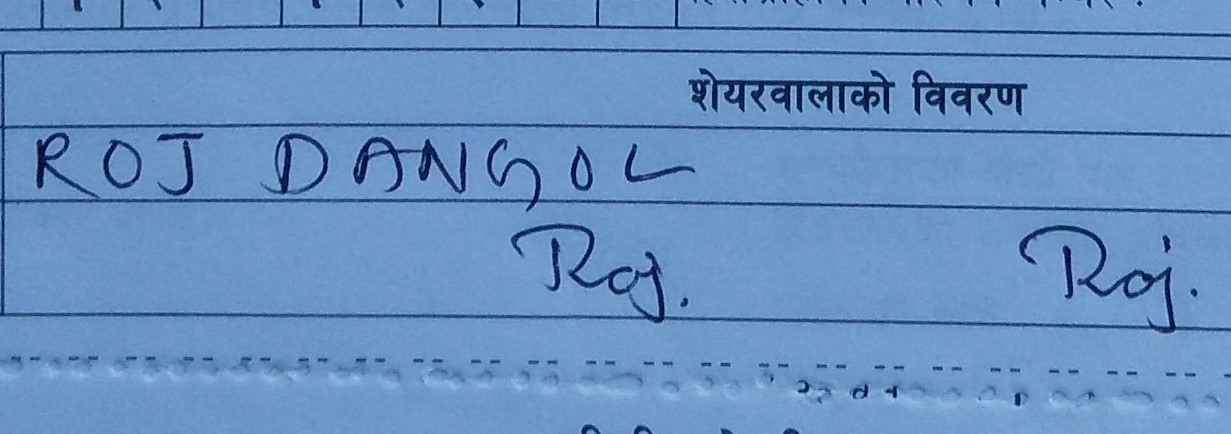 शेयरवालाको विवरण
ROJ DANGOL
Roj. Roj.